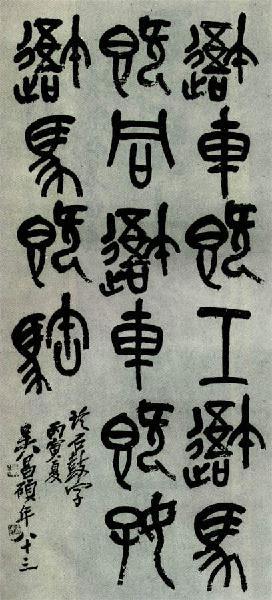 吾車既工吾馬
既同吾車既好
吾馬既𩣡
臨石鼓字
丙寅夏
吳昌碩年八十三